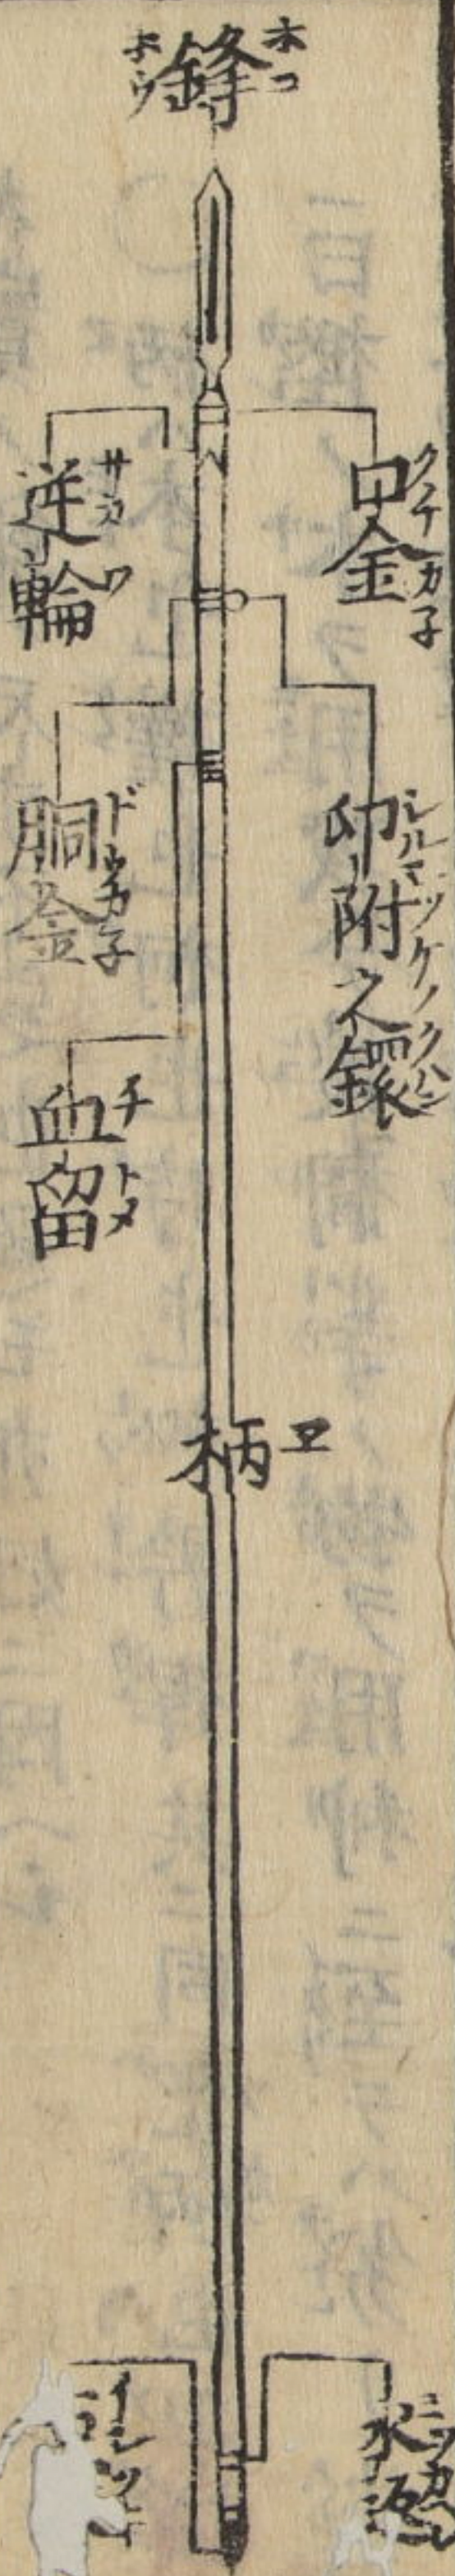 鋒
ホコ
ホウ
口金
クチカ子
逆輪
サカワ
印附之鐶
シルシツケノクハン
胴金
ドウカ子
血留
チトメ
柄
ヱ
水返
ミツカヘシ
イシツキ